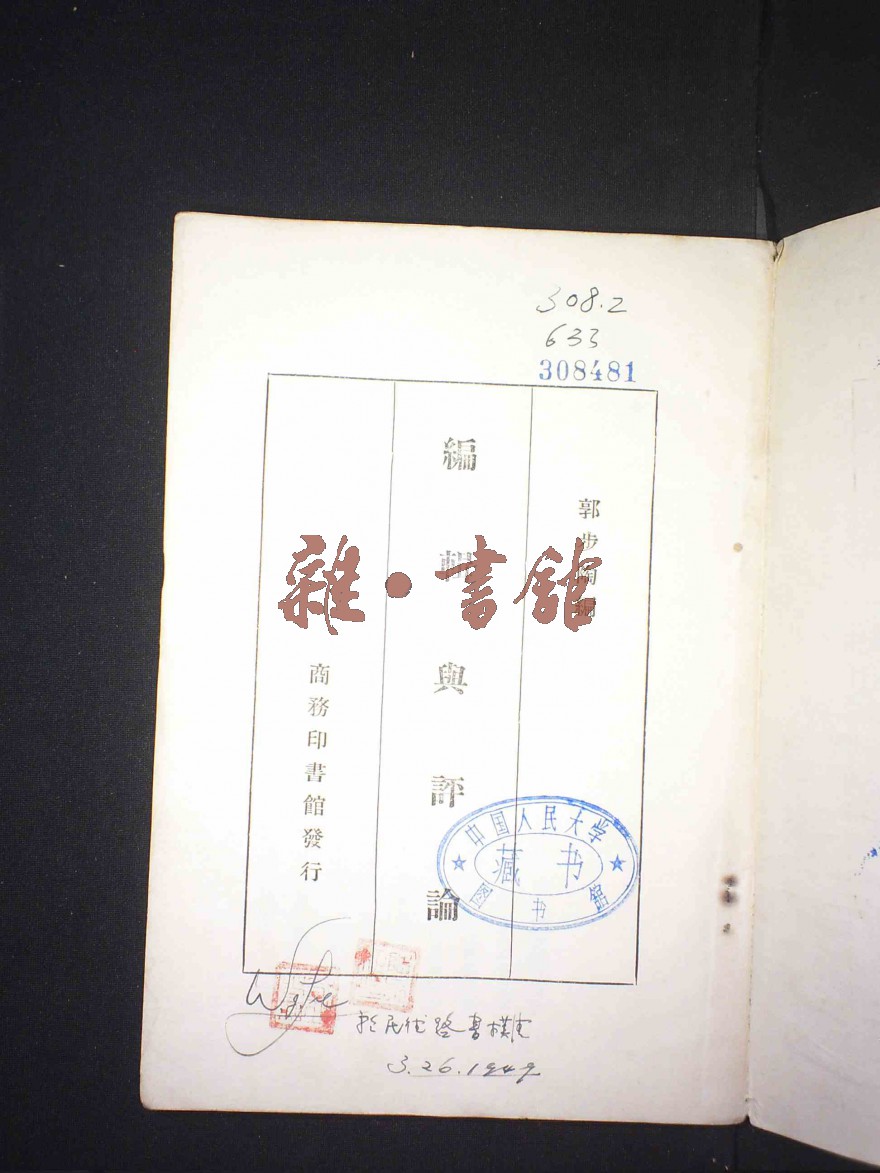 308.2
633
308481
郭步陶編
編輯與評論
商務印書館發行
雜·書館
中国人民大学
藏书
图书馆
3.26.1949